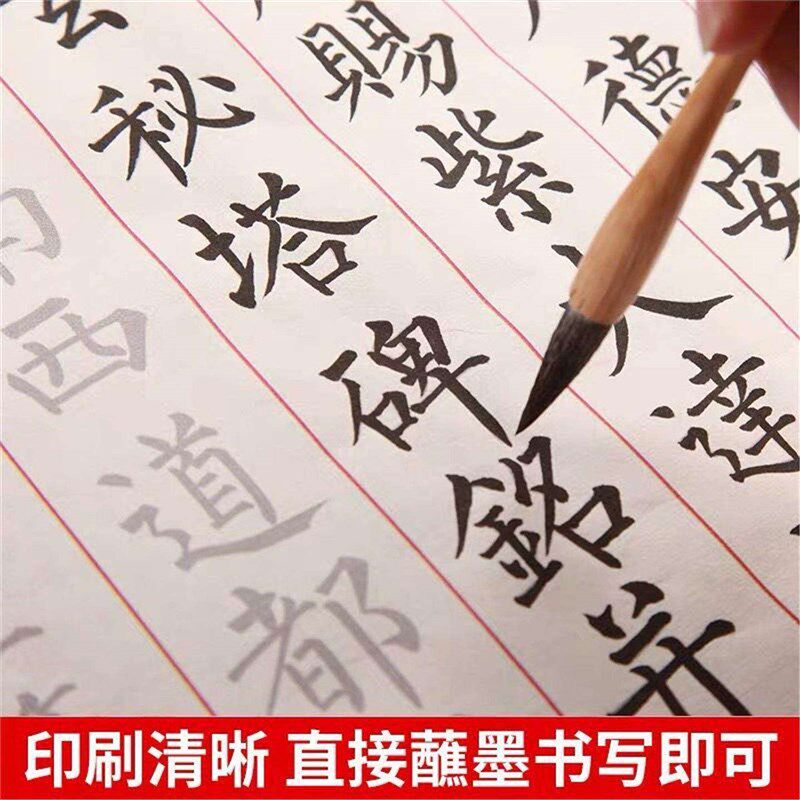 德安
賜紫大達
秘塔碑銘并
西道都
印刷清晰 直接蘸墨书写即可